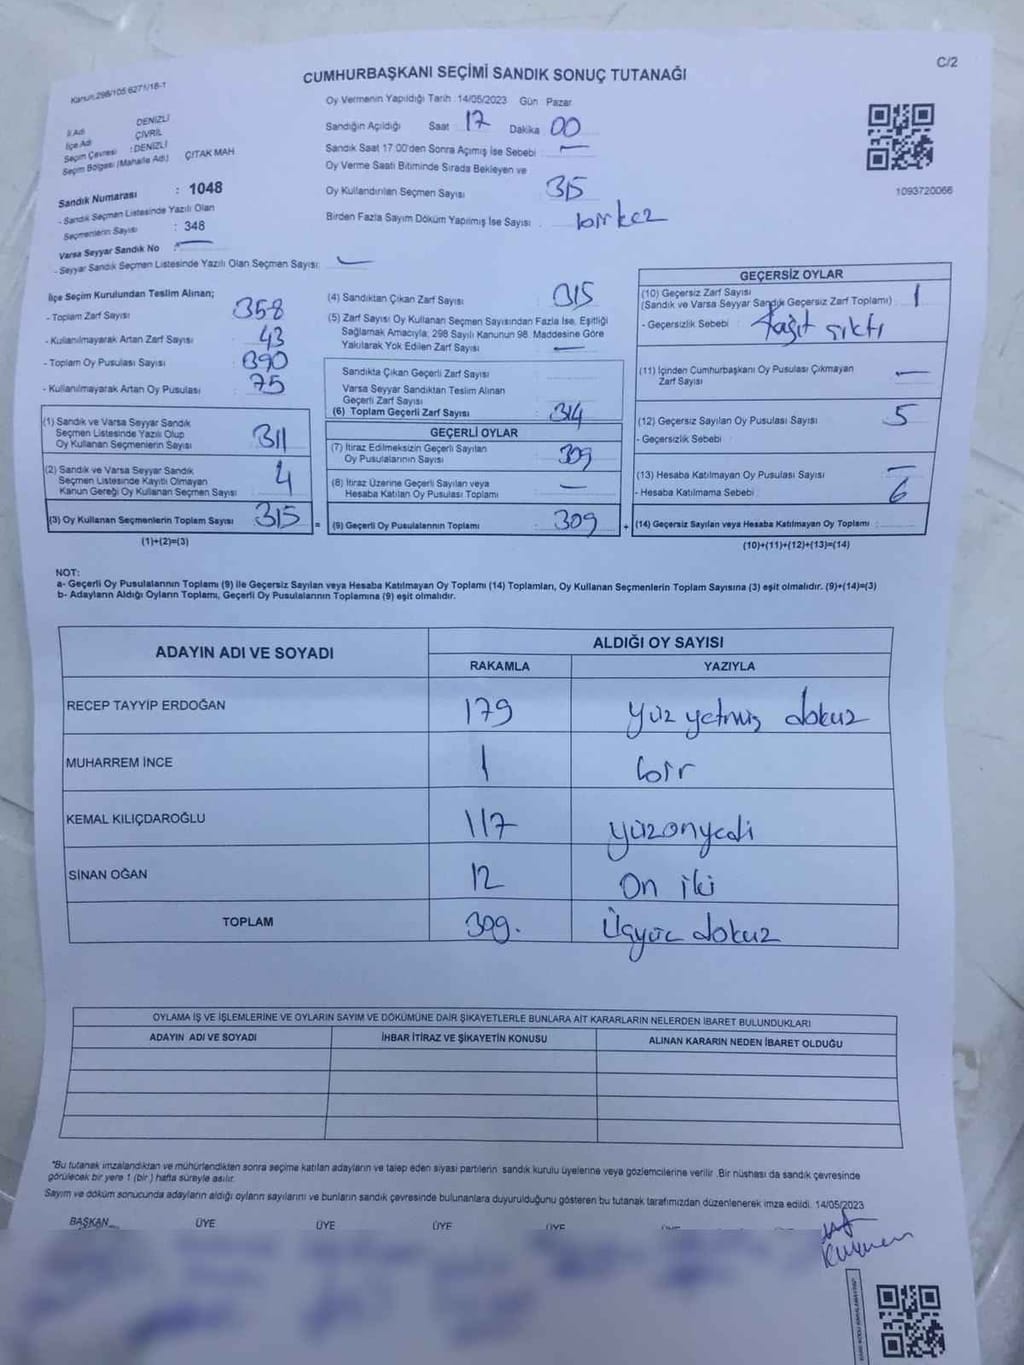 C/2
Kanun:298/105 6271/18-1
CUMHURBAŞKANI SEÇİMİ SANDIK SONUÇ TUTANAĞI
İl Adı DENİZLİ
İlçe Adı ÇİVRİL
Seçim Çevresi : DENİZLİ
Seçim Bölgesi (Mahalle Adı) ÇITAK MAH
Sandık Numarası : 1048
- Sandık Seçmen Listesinde Yazılı Olan
Seçmenlerin Sayısı : 348
Varsa Seyyar Sandık No :
- Seyyar Sandık Seçmen Listesinde Yazılı Olan Seçmen Sayısı:
Oy Vermenin Yapıldığı Tarih :14/05/2023 Gün : Pazar
Sandığın Açıldığı Saat 17 Dakika 00
Sandık Saat 17:00'den Sonra Açımış İse Sebebi : —
Oy Verme Saati Bitiminde Sırada Bekleyen ve
Oy Kullandırılan Seçmen Sayısı 315
Birden Fazla Sayım Döküm Yapılmış İse Sayısı : bir kez
1093720066
İlçe Seçim Kurulundan Teslim Alınan;
- Toplam Zarf Sayısı 358
- Kullanılmayarak Artan Zarf Sayısı 43
- Toplam Oy Pusulası Sayısı 390
- Kullanılmayarak Artan Oy Pusulası 75
(1) Sandık ve Varsa Seyyar Sandık
Seçmen Listesinde Yazılı Olup
Oy Kullanan Seçmenlerin Sayısı 311
(2) Sandık ve Varsa Seyyar Sandık
Seçmen Listesinde Kayıtlı Olmayan
Kanun Gereği Oy Kullanan Seçmen Sayısı 4
(3) Oy Kullanan Seçmenlerin Toplam Sayısı 315 =
(1)+(2)=(3)
(4) Sandıktan Çıkan Zarf Sayısı 315
(5) Zarf Sayısı Oy Kullanan Seçmen Sayısından Fazla İse, Eşitliği
Sağlamak Amacıyla; 298 Sayılı Kanunun 98. Maddesine Göre
Yakılarak Yok Edilen Zarf Sayısı : —
Sandıkta Çıkan Geçerli Zarf Sayısı
Varsa Seyyar Sandıktan Teslim Alınan
Geçerli Zarf Sayısı
(6) Toplam Geçerli Zarf Sayısı 314
GEÇERLİ OYLAR
(7) İtiraz Edilmeksizin Geçerli Sayılan
Oy Pusulalarının Sayısı 309
(8) İtiraz Üzerine Geçerli Sayılan veya
Hesaba Katılan Oy Pusulası Toplamı —
(9) Geçerli Oy Pusulalarının Toplamı 309 +
GEÇERSİZ OYLAR
(10) Geçersiz Zarf Sayısı 1
(Sandık ve Varsa Seyyar Sandık Geçersiz Zarf Toplamı)
- Geçersizlik Sebebi : Kağıt çıktı
(11) İçinden Cumhurbaşkanı Oy Pusulası Çıkmayan
Zarf Sayısı —
(12) Geçersiz Sayılan Oy Pusulası Sayısı 5
- Geçersizlik Sebebi
(13) Hesaba Katılmayan Oy Pusulası Sayısı —
- Hesaba Katılmama Sebebi 6
(14) Geçersiz Sayılan veya Hesaba Katılmayan Oy Toplamı
(10)+(11)+(12)+(13)=(14)
NOT:
a- Geçerli Oy Pusulalarının Toplamı (9) ile Geçersiz Sayılan veya Hesaba Katılmayan Oy Toplamı (14) Toplamları, Oy Kullanan Seçmenlerin Toplam Sayısına (3) eşit olmalıdır. (9)+(14)=(3)
b- Adayların Aldığı Oyların Toplamı, Geçerli Oy Pusulalarının Toplamına (9) eşit olmalıdır.
ADAYIN ADI VE SOYADI ALDIĞI OY SAYISI
RAKAMLA YAZIYLA
RECEP TAYYİP ERDOĞAN 179 yüz yetmiş dokuz
MUHARREM İNCE 1 bir
KEMAL KILIÇDAROĞLU 117 yüzonyedi
SİNAN OĞAN 12 On iki
TOPLAM 309. Üçyüz dokuz
OYLAMA İŞ VE İŞLEMLERİNE VE OYLARIN SAYIM VE DÖKÜMÜNE DAİR ŞİKAYETLERLE BUNLARA AİT KARARLARIN NELERDEN İBARET BULUNDUKLARI
ADAYIN ADI VE SOYADI İHBAR İTİRAZ VE ŞİKAYETİN KONUSU ALINAN KARARIN NEDEN İBARET OLDUĞU
*Bu tutanak imzalandıktan ve mühürlendikten sonra seçime katılan adayların ve talep eden siyasi partilerin sandık kurulu üyelerine veya gözlemcilerine verilir. Bir nüshası da sandık çevresinde
görülecek bir yere 1 (bir) hafta süreyle asılır.
Sayım ve döküm sonucunda adayların aldığı oyların sayılarını ve bunların sandık çevresinde bulunanlara duyurulduğunu gösteren bu tutanak tarafımızdan düzenlenerek imza edildi. 14/05/2023
BAŞKAN ÜYE ÜYE ÜYE ÜYE